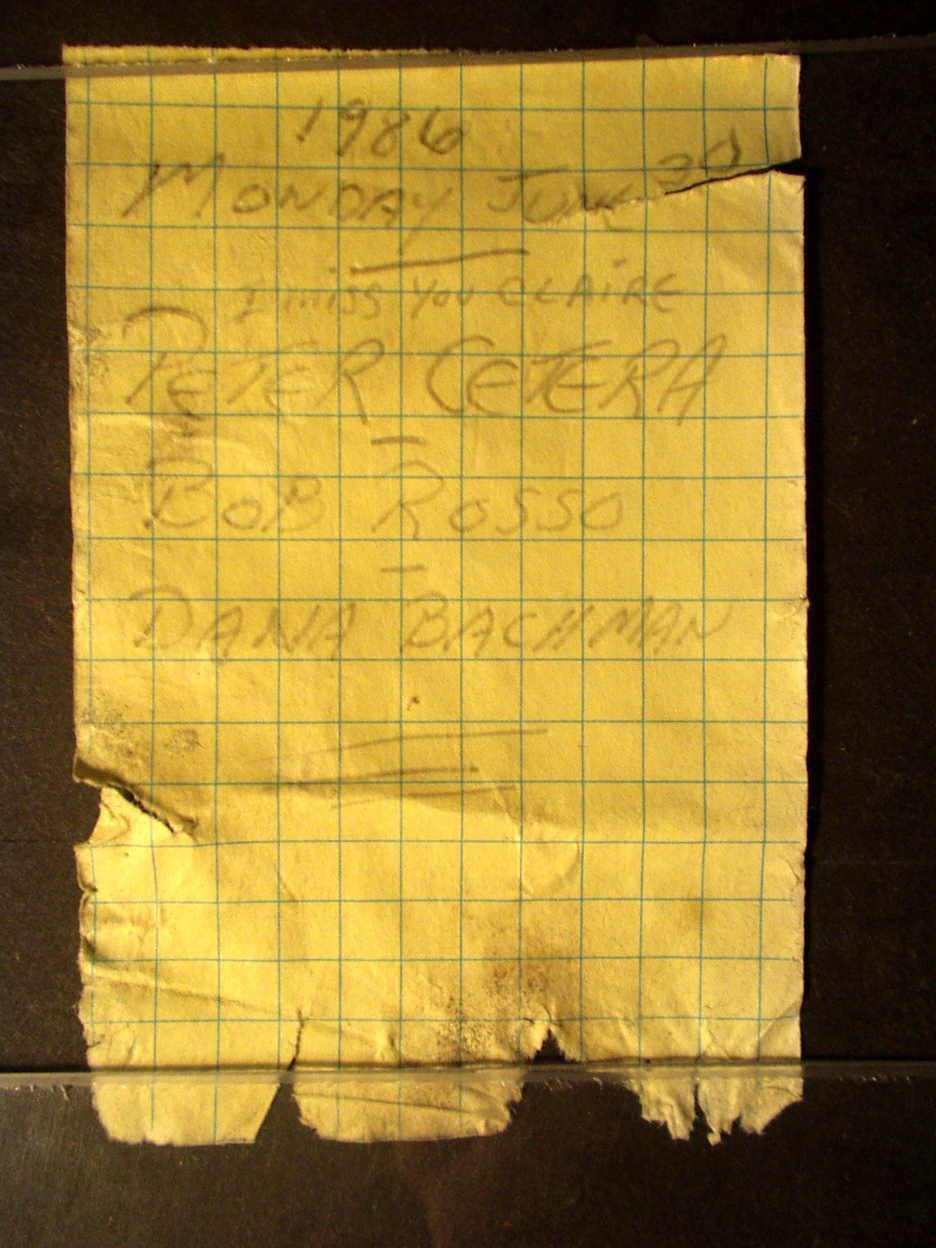 1986
MONDAY JUNE 30
I miss You CLAiRE
PETER CETERA
BOB ROSSO
DANA BACHMAN